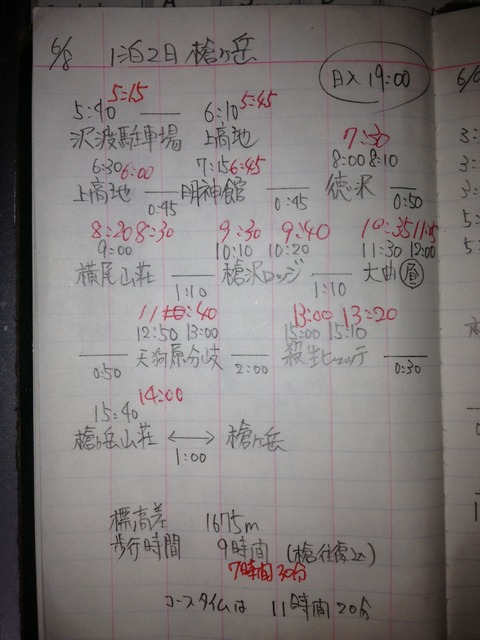 6/8 1泊2日 槍ヶ岳
日入 19:00
5:15 5:45
5:40 6:10
沢渡駐車場 上高地
7:30
6:30 6:00 7:15 6:45 8:00 8:10
上高地 明神館 徳沢
0:45 0:45 0:50
8:20 8:30 9:30 9:40 10:35 11:05
9:00 10:10 10:20 11:30 12:00
横尾山荘 槍沢ロッジ 大曲 昼
1:10 1:10
11:40 13:00 13:20
12:50 13:00 15:00 15:10
天狗原分岐 殺生ヒュッテ
0:50 2:00 0:30
14:00
15:40
槍ヶ岳山荘 ↔ 槍ヶ岳
1:00
標高差 1675m
歩行時間 9時間 (槍往復込)
7時間30分
コースタイムは 11時間20分